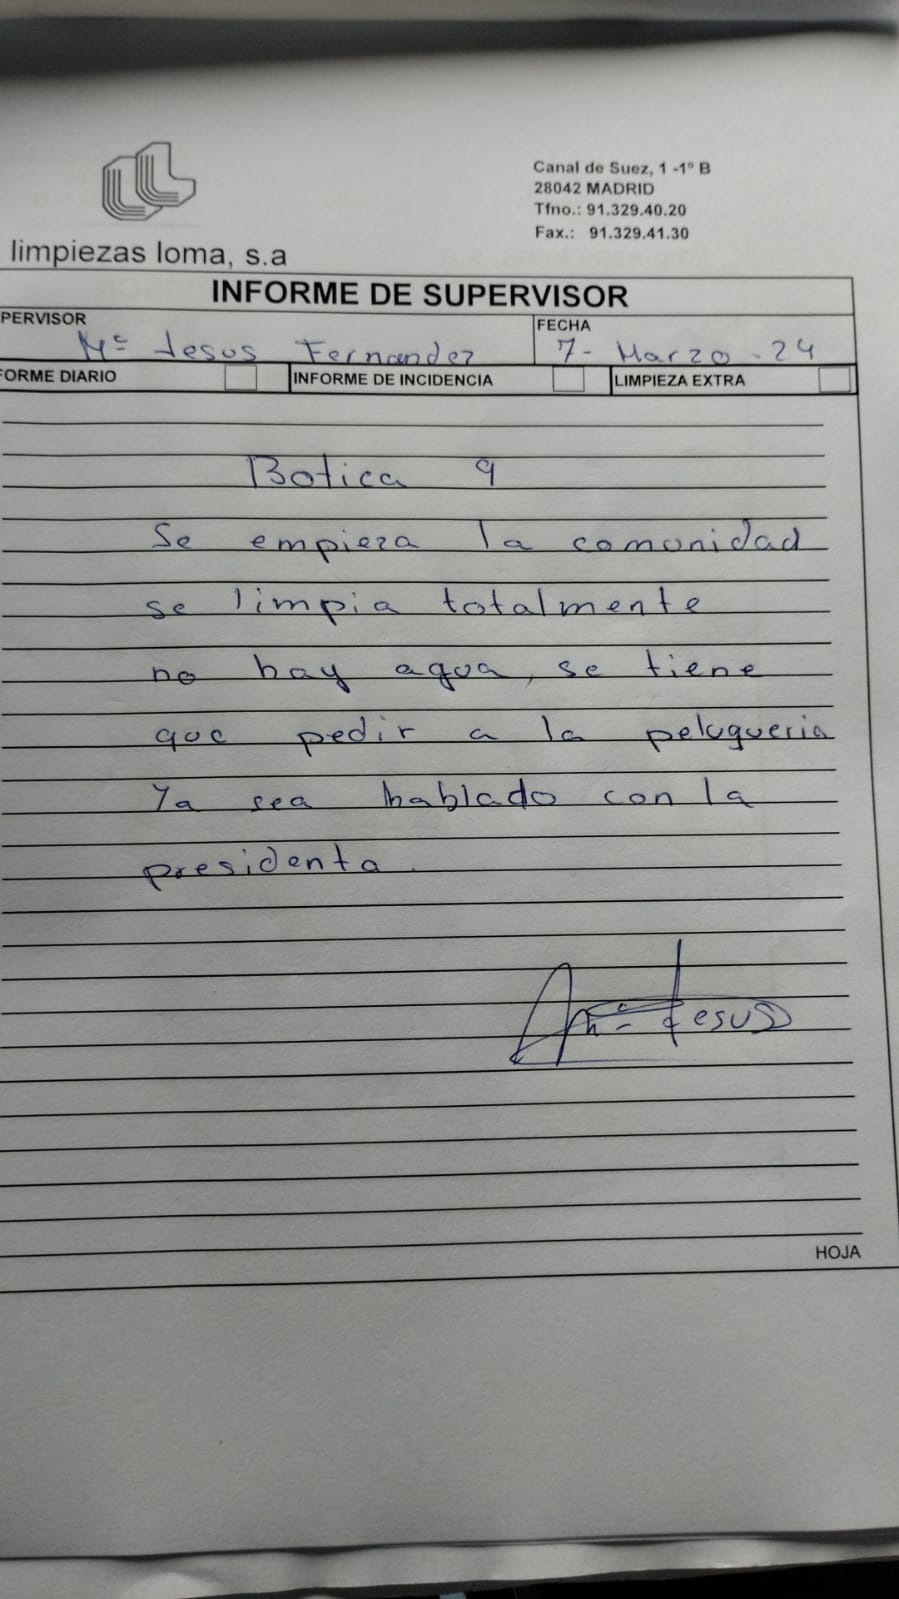 Canal de Suez, 1 -1º B
28042 MADRID
Tfno.: 91.329.40.20
Fax.: 91.329.41.30
limpiezas loma, s.a
INFORME DE SUPERVISOR
PERVISOR
Mª Jesus Fernandez
FECHA
7- Marzo - 24
FORME DIARIO
INFORME DE INCIDENCIA
LIMPIEZA EXTRA
Botica 9
Se empieza la comunidad
se limpia totalmente
no hay agua, se tiene
que pedir a la peluqueria
Ya sea hablado con la
presidenta.
Mª Jesus
HOJA